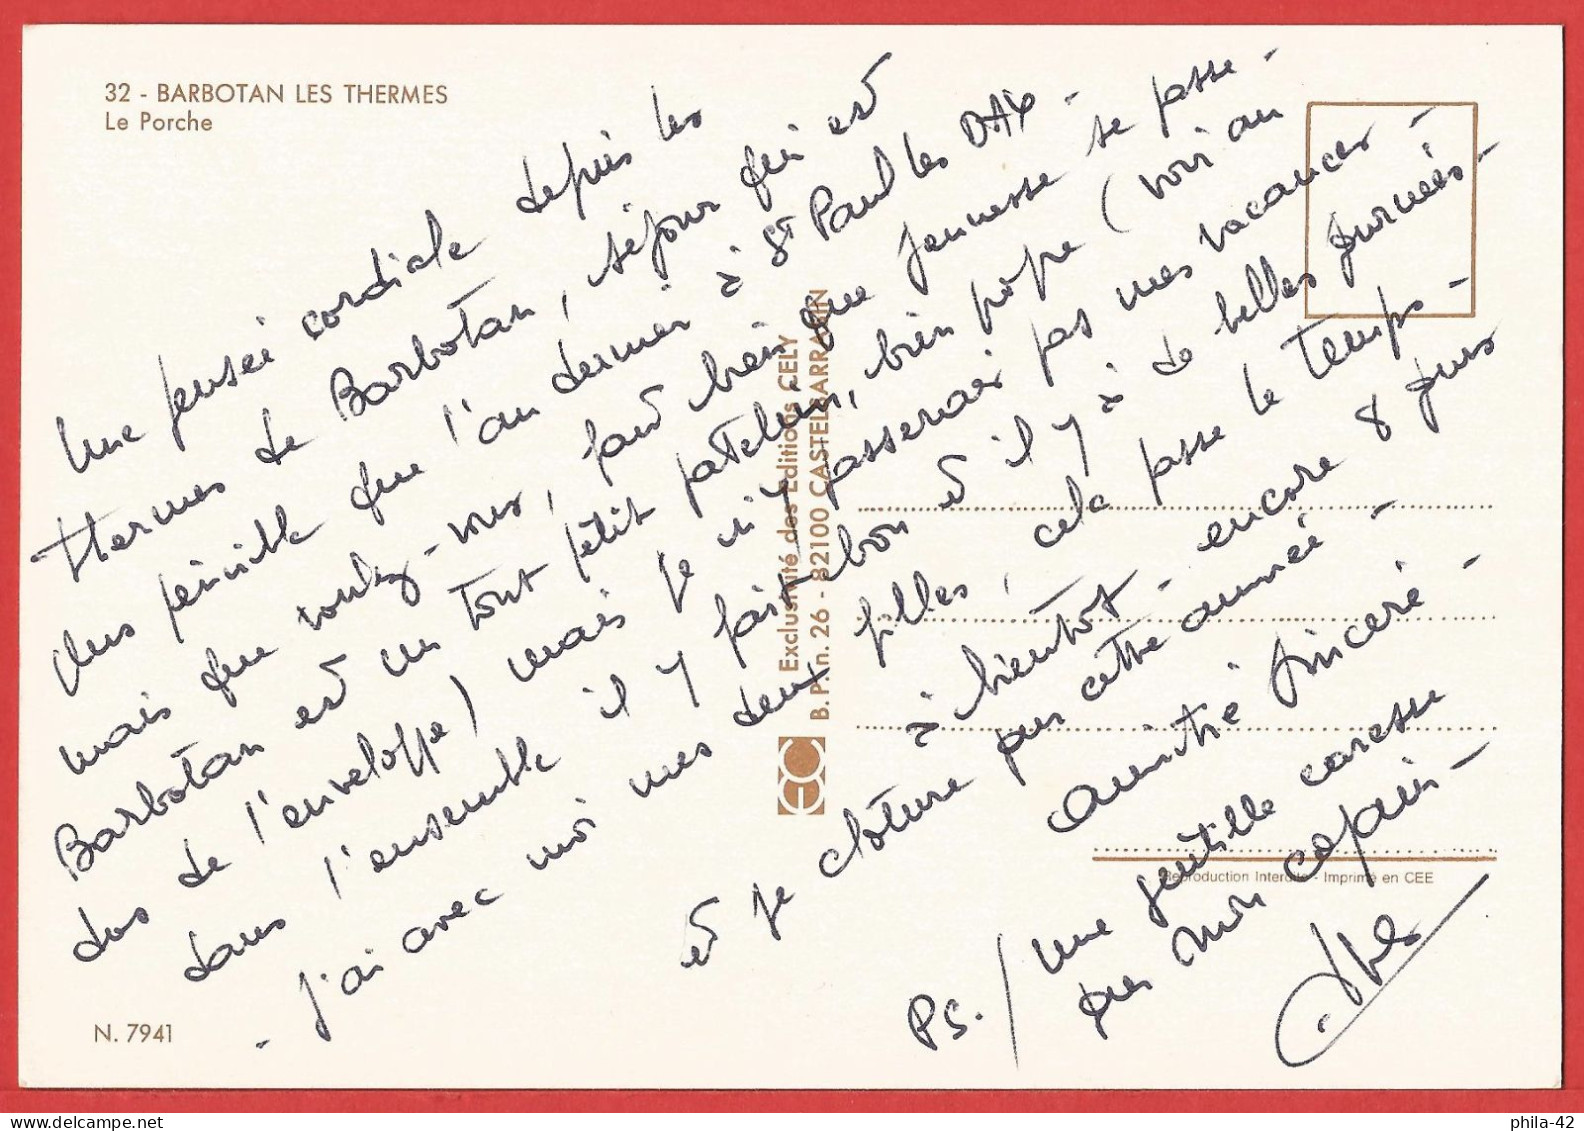 32 - BARBOTAN LES THERMES
Le Porche
Une pensée cordiale depuis les
thermes de Barbotan, séjour qui est
plus pénible que l'an dernier à St Paul les DAX -
mais que voulez-vous, faut bien que jeunesse se passe -
Barbotan est un tout petit patelin, bien propre (voir au
dos de l'enveloppe) mais je n'y passerais pas mes vacances -
dans l'ensemble il y fait bon et il y a de belles journées -
- J'ai avec moi mes deux filles, cela passe le temps -
et je cloture à bientot - encore 8 jours
pour cette année -
amitié sincère -
PS. / Une gentille caresse
pour mon copain -
Exclusivité des Editions CELY
B. P. n. 26 - 82100 CASTELSARRASIN
Reproduction Interdite - Imprimé en CEE
N. 7941
phila-42